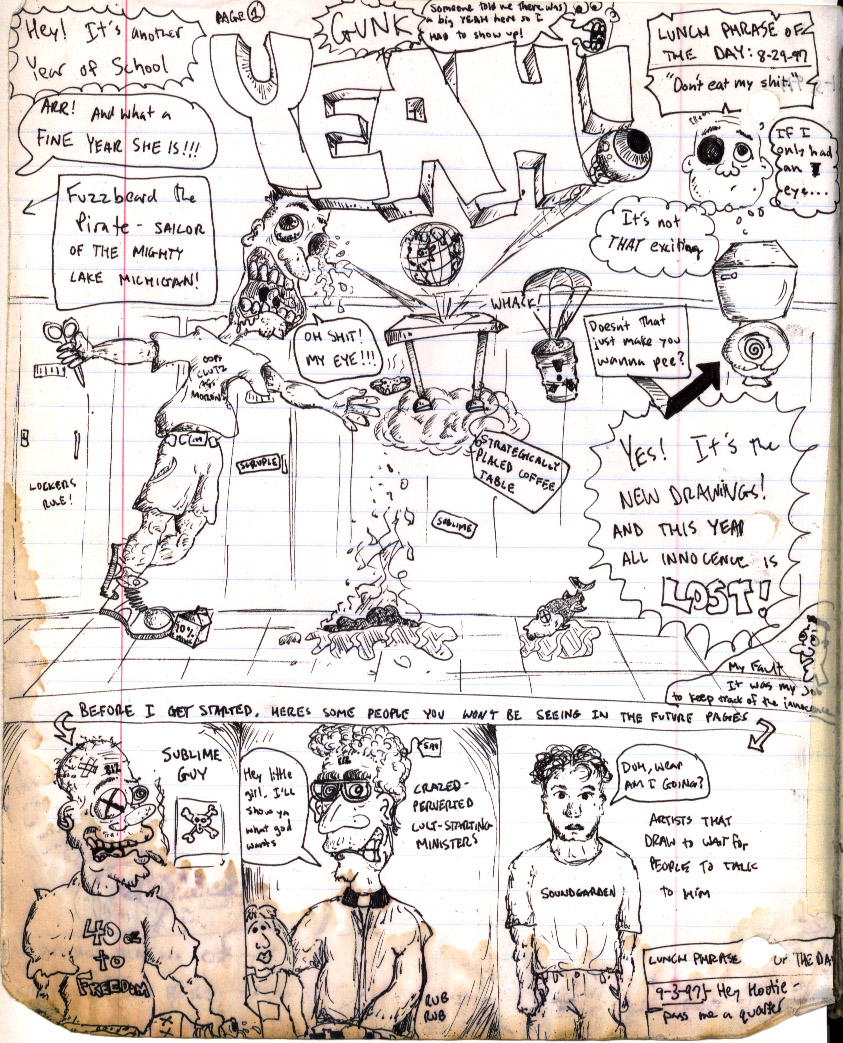 PAGE 1
Hey! It's another
Year of School
ARR! And what a
FINE YEAR SHE IS!!!
Fuzzbeard the
Pirate - SAILOR
OF THE MIGHTY
LAKE MICHIGAN!
GUNK
Someone told me there was
a big YEAH here so I
HAD to show up!
YEAH!
LUNCH PHRASE OF
THE DAY: 8-29-97
"Don't eat my shit."
IF I
only had
an
eye...
It's not
THAT exciting
WHACK!
OH SHIT!
MY EYE!!!
Doesn't that
just make you
wanna pee?
OOPS
CLUTZ
ASS
MORON
STRATEGICALLY
PLACED COFFEE
TABLE
SCRUPLE
SUBLIME
LOCKERS
RULE!
10%
Yes! It's the
NEW DRAWINGS!
AND THIS YEAR
ALL INNOCENCE IS
LOST!
My Fault
It was my Job
to keep track of the innocence
BEFORE I GET STARTED, HERES SOME PEOPLE YOU WON'T BE SEEING IN THE FUTURE PAGES
SUBLIME
GUY
40 oz
to
FREEDOM
Hey little
girl, I'll
show ya
what god
wants
CRAZED-
PERVERTED
CULT-STARTING
MINISTERS
RUB
RUB
DUH, WHAR
AM I GOING?
ARTISTS THAT
DRAW to WAIT for
PEOPLE TO TALK
to HIM
SOUNDGARDEN
LUNCH PHRASE OF THE DA
9-3-97 - Hey Hootie -
pass me a quarter